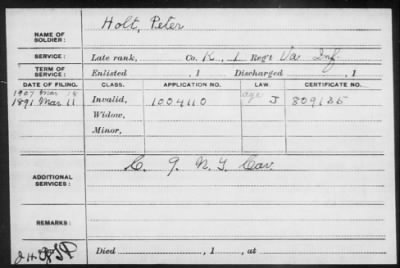 NAME OF SOLDIER: Holt, Peter
SERVICE: Late rank, Co. K, 1 Reg't Va Inf.
TERM OF SERVICE: Enlisted , 1 Discharged , 1
DATE OF FILING. CLASS. APPLICATION NO. LAW. CERTIFICATE NO.
1907 Mar 18 age
1891 Mar 11 Invalid, 1004110 J 809125
Widow,
Minor,
ADDITIONAL SERVICES: C. 9. N. Y. Cav.
REMARKS:
Died , 1 , at